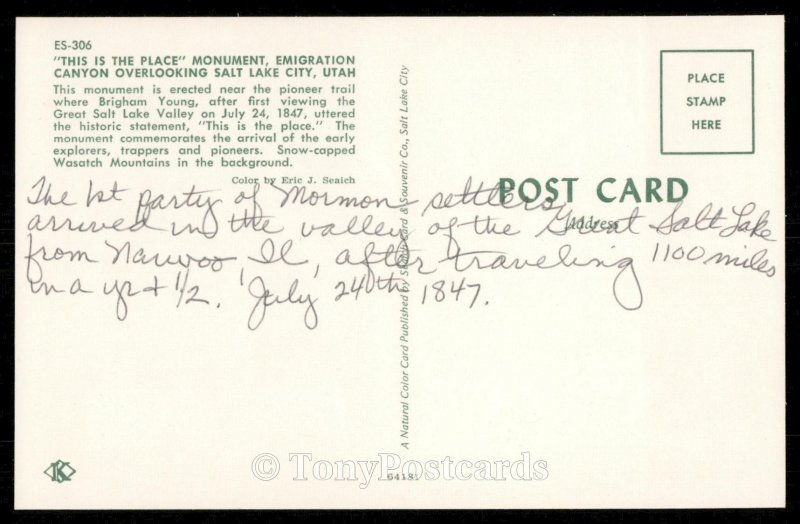 ES-306
"THIS IS THE PLACE" MONUMENT, EMIGRATION
CANYON OVERLOOKING SALT LAKE CITY, UTAH
This monument is erected near the pioneer trail
where Brigham Young, after first viewing the
Great Salt Lake Valley on July 24, 1847, uttered
the historic statement, "This is the place." The
monument commemorates the arrival of the early
explorers, trappers and pioneers. Snow-capped
Wasatch Mountains in the background.
Color by Eric J. Seaich
PLACE
STAMP
HERE
POST CARD
Address
The 1st party of Mormon settlers
arrived in the valley of the Great Salt Lake
from Nauvoo Il, after traveling 1100 miles
in a yr + 1/2. July 24th 1847.
A Natural Color Card Published by Stationcard & Souvenir Co., Salt Lake City
K
64181
© TonyPostcards